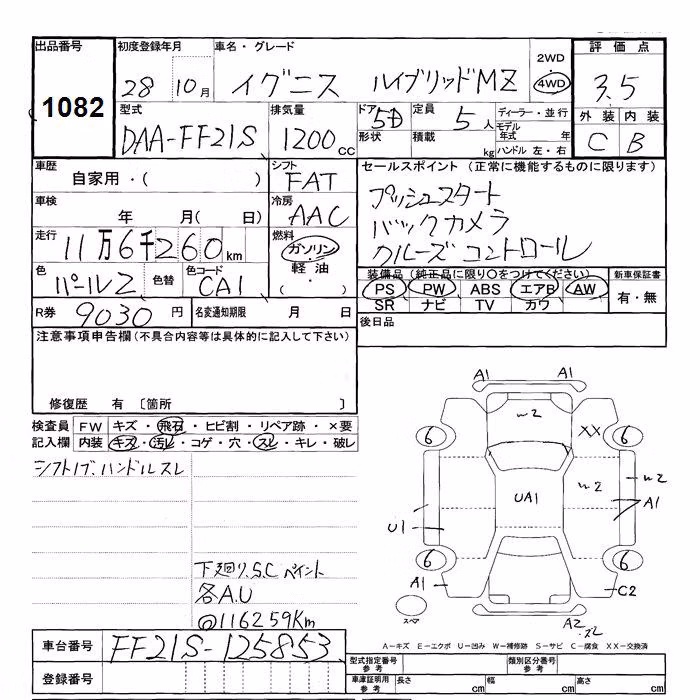 出品番号 初度登録年月 車名・グレード 2WD 評価点
1082 28 10月 イグニス ハイブリッドMZ 4WD 3.5
型式 排気量 ドア 5D 定員 5人 ディーラー・並行 外装 内装
DAA-FF21S 1200cc 形状 積載 kg モデル年式 年 C B
ハンドル 左・右
車歴 シフト セールスポイント (正常に機能するものに限ります)
自家用・( ) FAT プッシュスタート
車検 冷房
年 月( 日) AAC バックカメラ
走行 燃料
11万6千260km ガソリン クルーズコントロール
軽油
( ・ )
色 パール2 色替 色コード CA1 装備品(純正品に限り○をつけてください) 新車保証書
PS PW ABS エアB AW 有・無
SR ナビ TV カワ
R券 9030円 名変通知期限 月 日 後日品
注意事項申告欄(不具合内容等は具体的に記入して下さい)
修復歴 有 [箇所 ]
検査員 FW キズ・飛石・ヒビ割・リペア跡・×要
記入欄 内装 キズ・汚レ・コゲ・穴・スレ・キレ・破レ
シフトノブ.ハンドルスレ
A1 A1
w2
6 XX 6
w2 w2
UA1 A1
U1
6 6
A1 C2
スペア A2.スレ
下廻り.S.C ペイント
各A.U
@116259Km
A-キズ E-エクボ U-凹み W-補修跡 S-サビ C-腐食 XX-交換済
車台番号 FF21S-125853 型式指定番号 参考 類別区分番号 参考
登録番号 車庫証明用 参考 長さ cm 幅 cm 高さ cm